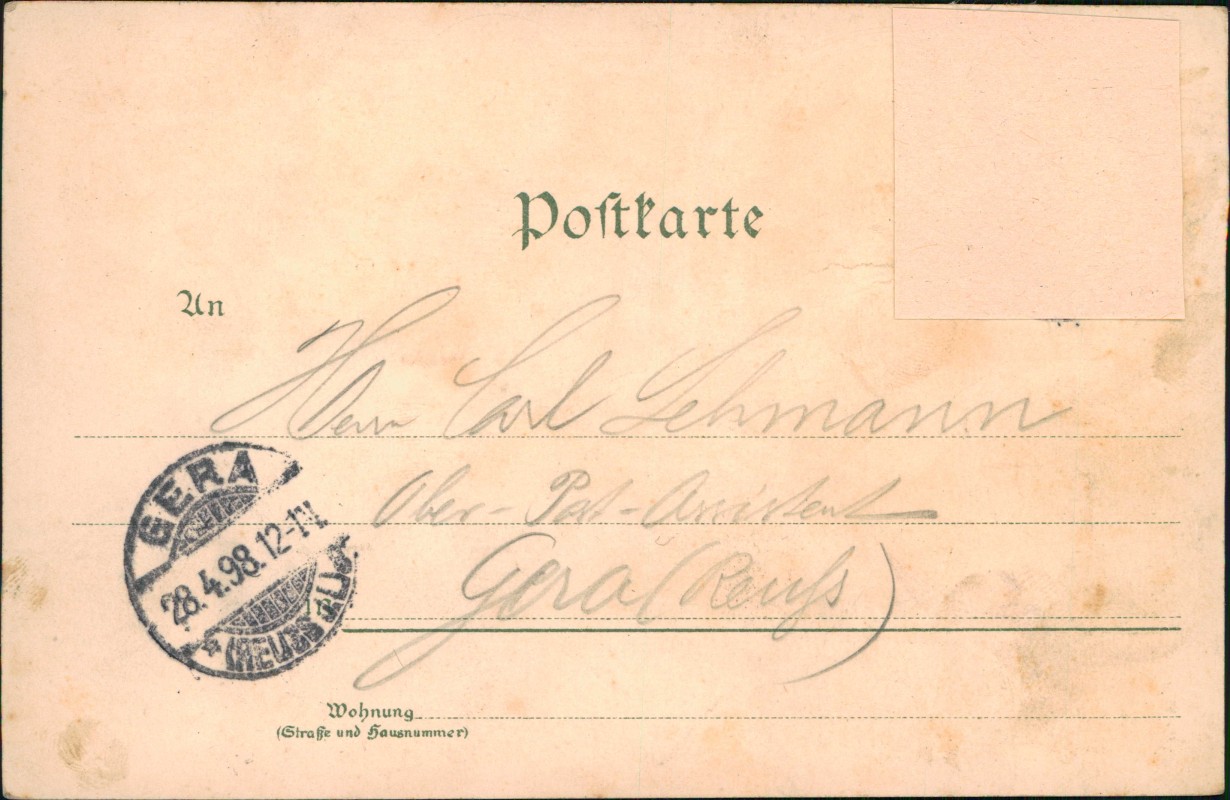 Postkarte
An
Herrn Carl Lehmann
Ober-Post-Assistent
Gera (Reuß)
in
GERA
28.4.98.12-1N.
* (REUSS J.L.)
Wohnung
(Straße und Hausnummer)